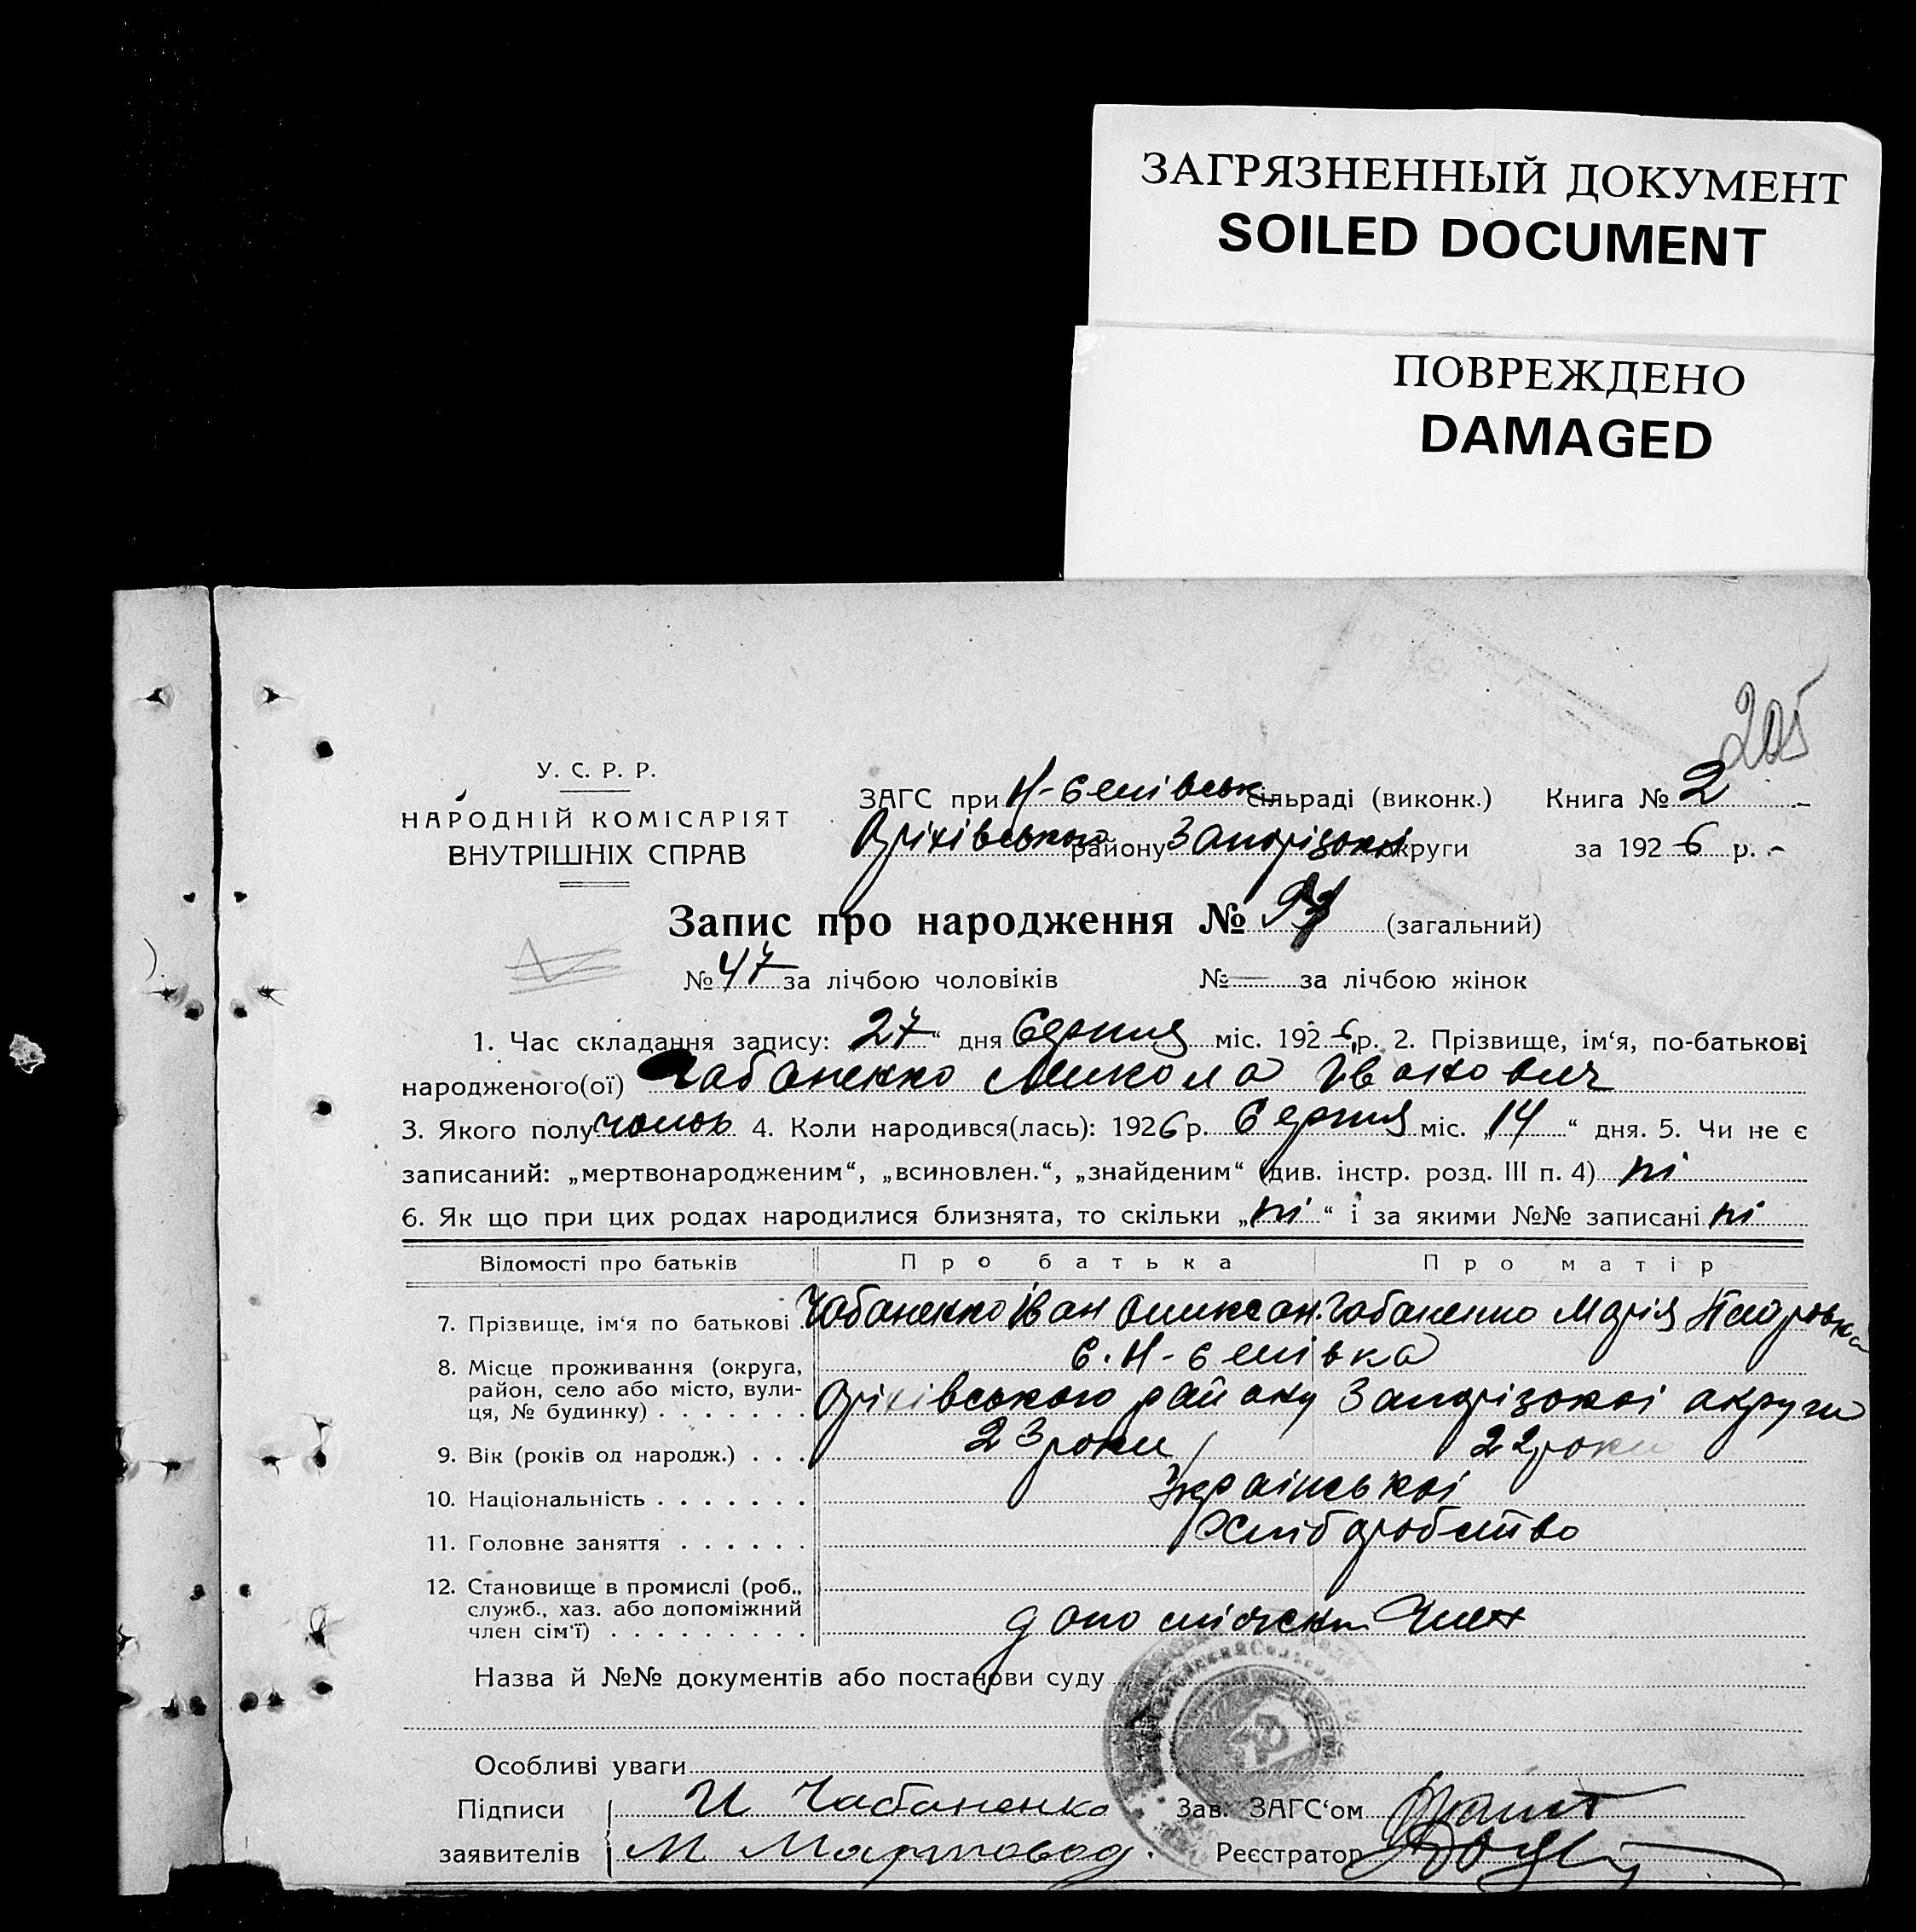 ЗАГРЯЗНЕННЫЙ ДОКУМЕНТ
SOILED DOCUMENT
ПОВРЕЖДЕНО
DAMAGED
205
У. С. Р. Р.
НАРОДНІЙ КОМІСАРІЯТ
ВНУТРІШНІХ СПРАВ
ЗАГС при Н-Єлнівськ сільраді (виконк.) Книга № 2
Оріхівського району Запорізької округи за 1926 р.
Запис про народження № 97 (загальний)
№ 47 за лічбою чоловіків № — за лічбою жінок
1. Час складання запису: „27“ дня Серпня міс. 1926 р. 2. Прізвище, ім‘я, по-батькові
народженого(ої) Чабаненко Микола Іванович
3. Якого полу чолов 4. Коли народився(лась): 1926 р. Серпня міс. „14“ дня. 5. Чи не є
записаний: „мертвонародженим“, „всиновлен.“, „знайденим“ (див. інстр. розд. III п. 4) ні
6. Як що при цих родах народилися близнята, то скільки „ні“ і за якими №№ записані ні
Відомості про батьків Про батька Про матір
7. Прізвище, ім‘я по батькові Чабаненко Іван Оликсан. Чабаненко Марія Петровна
8. Місце проживання (округа,
район, село або місто, вули-
ця, № будинку) . . . . . . .
Оріхівського району Запорізькоі округи
9. Вік (років од народж.) . . . 23 роки 22 роки
10. Національність . . . . . . . Українськоі
11. Головне заняття . . . . . . Хліборобство
12. Становище в промислі (роб.,
служб., хаз. або допоміжний
член сім‘ї) . . . . . . . . . допоміжни Член
Назва й №№ документів або постанови суду
Особливі уваги
Підписи И Чабаненко Зав. ЗАГС‘ом
заявителів М Мартовод. Реєстратор